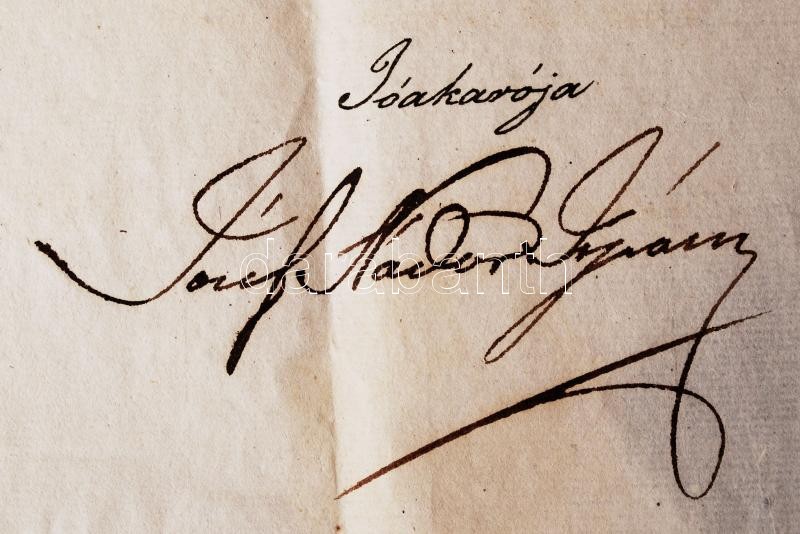 Jóakarója
József Nádor Ispán
darabanth